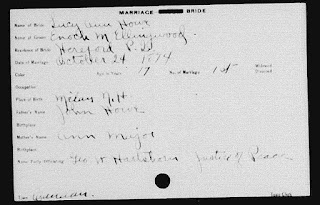 MARRIAGE BRIDE
Name of Bride, Lucy Ann Howe
Name of Groom, Enoch M Ellingwood
Residence of Bride, Hereford P. Q.
Date of Marriage, October 24, 1874
Color Age in Years 17 No. of Marriage, 1st Widowed
Divorced
Occupation
Place of Birth, Milan N.H.
Father's Name, John Howe
Birthplace
Mother's Name, Ann
Birthplace
Name Party Officiating, Geo W Hartshorn Justice of Peace
Town Clerk